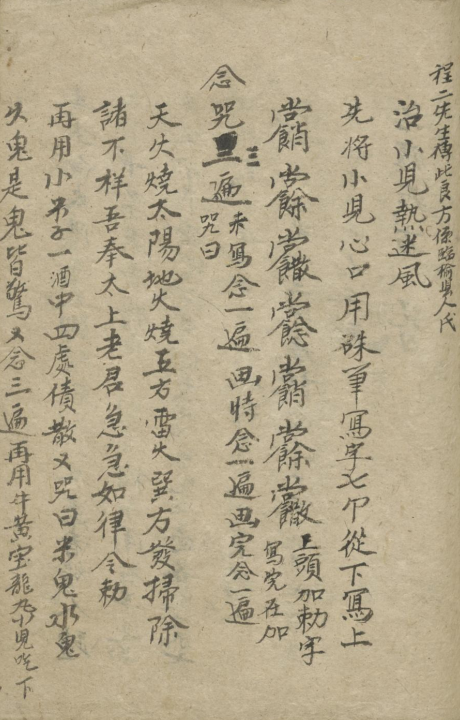 程二先生傳此良方係臨榆縣人氏
治小兒熱迷風
先將小兒心口用硃筆寫字七个從下寫上
上頭加勅字
寫完在加
念咒三遍未寫念一遍画時念一遍画完念一遍
咒曰
天火燒太陽地火燒五方雷火巽方發掃除
諸不祥吾奉太上老君急急如律令勅
再用小米子一酒中四處債散又咒曰米鬼水鬼
火鬼是鬼皆驚又念三遍再用牛黃宝龍丸小兒吃下